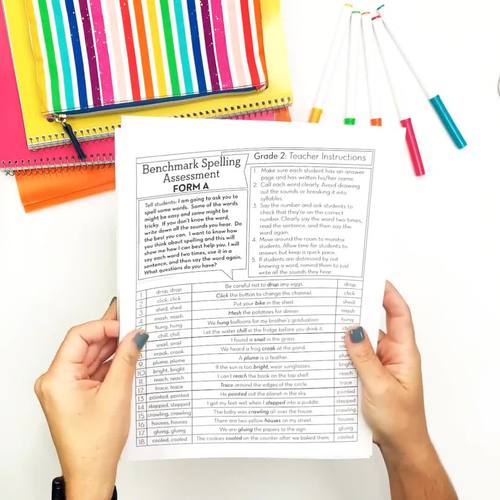 Benchmark Spelling
Assessment
FORM A
Grade 2: Teacher Instructions
Tell students: I am going to ask you to
spell some words. Some of the words
might be easy and some might be
tricky. If you don't know the word,
write down all the sounds you hear. Do
the best you can. I want to know how
you think about spelling and this will
show me how I can best help you. I will
say each word two times, use it in a
sentence, and then say the word again.
What questions do you have?
1. Make sure each student has an answer
page and has written his/her name.
2. Call each word clearly. Avoid drawing
out the sounds or breaking it into
syllables.
3. Say the number and ask students to
check that they're on the correct
number. Clearly say the word two times,
read the sentence, and then say the
word again.
4. Move around the room to monitor
students. Allow time for students to
answer, but keep a quick pace.
5. If students are distressed by not
knowing a word, remind them to just
write all the sounds they hear.
drop, drop Be careful not to drop any eggs. drop
click, click Click the button to change the channel. click
shed, shed Put your bike in the shed. shed
mash, mash Mash the potatoes for dinner. mash
hung, hung We hung balloons for my brother's graduation. hung
chill, chill Let the water chill in the fridge before you drink it. chill
snail, snail I found a snail in the grass.
croak, croak We heard a frog croak at the pond.
plume, plume A plume is a feather.
bright, bright If the sun is too bright, wear sunglasses.
reach, reach I can't reach the book on the top shelf. reach
12 trace, trace Trace around the edges of the circle. trace
13 painted, painted He painted out the planet in the sky. painted
14 stepped, stepped I got my feet wet when I stepped into a puddle. stepped
15 crawling, crawling The baby was crawling all over the house. crawling
16 houses, houses There are two yellow houses on my street. houses
17 gluing, gluing We are gluing the papers to the sign. gluing
18 cooled, cooled The cookies cooled on the counter after we baked them. cooled